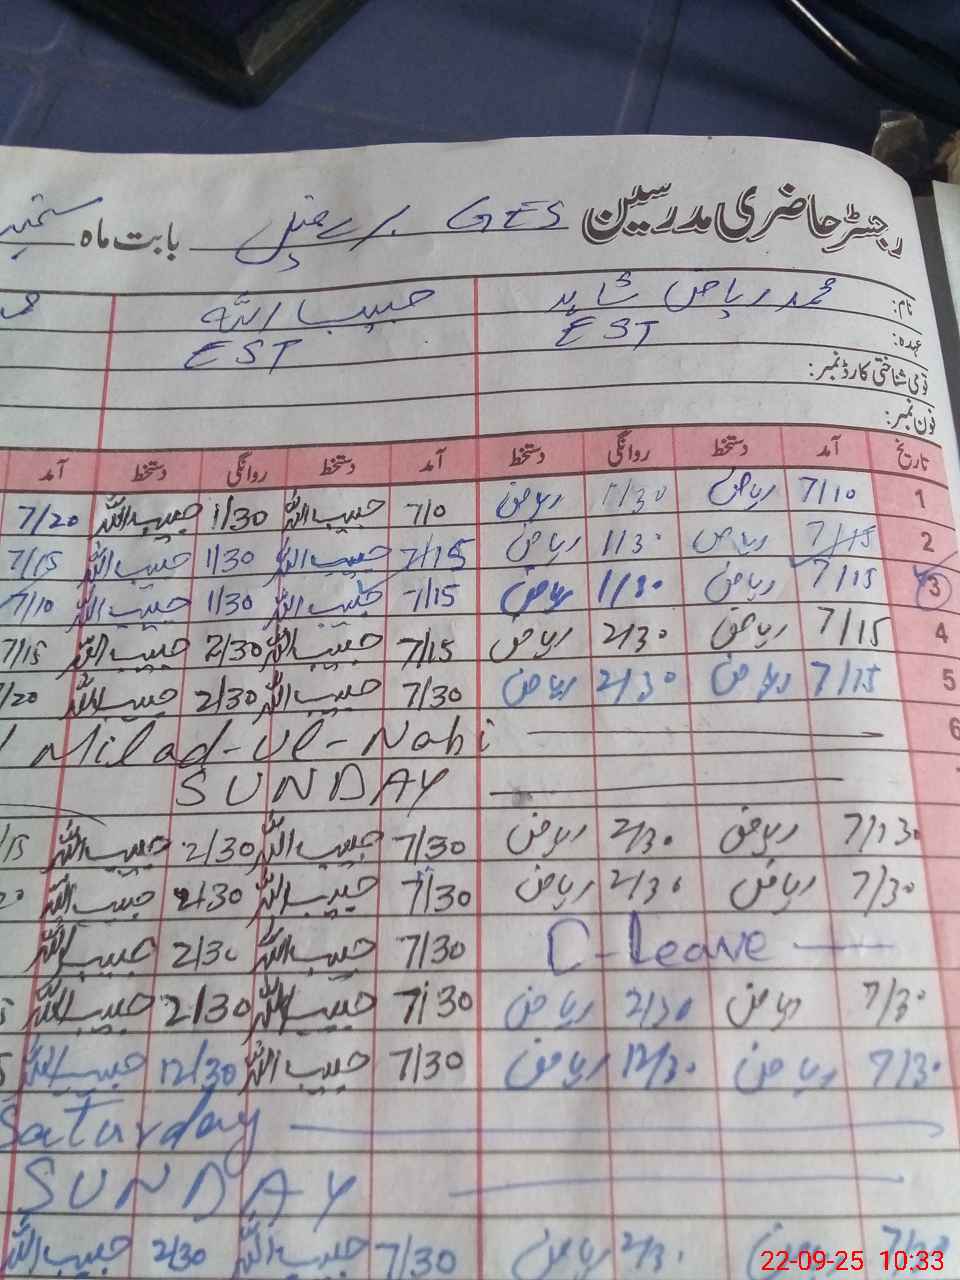 رجسٹر حاضری مدرسین GES بابت ماہ ستمبر
نام: محمد ریاض شاہد حبیب اللہ
عہدہ: EST EST
قومی شناختی کارڈ نمبر:
فون نمبر:
تاریخ آمد دستخط روانگی دستخط آمد دستخط روانگی دستخط آمد
1 7/10 ریاض 1/30 ریاض 7/0 حبیب اللہ 1/30 حبیب اللہ 7/20
2 7/15 ریاض 1/30 ریاض 7/15 حبیب اللہ 1/30 حبیب اللہ 7/15
3 7/15 ریاض 1/30 ریاض 7/15 حبیب اللہ 1/30 حبیب اللہ 7/10
4 7/15 ریاض 2/30 ریاض 7/15 حبیب اللہ 2/30 حبیب اللہ 7/15
5 7/15 ریاض 2/30 ریاض 7/30 حبیب اللہ 2/30 حبیب اللہ /20
6 Milad-Ul-Nabi
SUNDAY
7/30 ریاض 2/30 ریاض 7/30 حبیب اللہ 2/30 حبیب اللہ /15
7/30 ریاض 2/30 ریاض 7/30 حبیب اللہ 2/30 حبیب اللہ
C-Leave 7/30 حبیب اللہ 2/30 حبیب اللہ
7/30 ریاض 2/30 ریاض 7/30 حبیب اللہ 2/30 حبیب اللہ
7/30 ریاض 12/30 ریاض 7/30 حبیب اللہ 12/30 حبیب اللہ
Saturday
SUNDAY
ریاض 2/30 ریاض 7/30 حبیب اللہ 2/30 حبیب اللہ
22-09-25 10:33